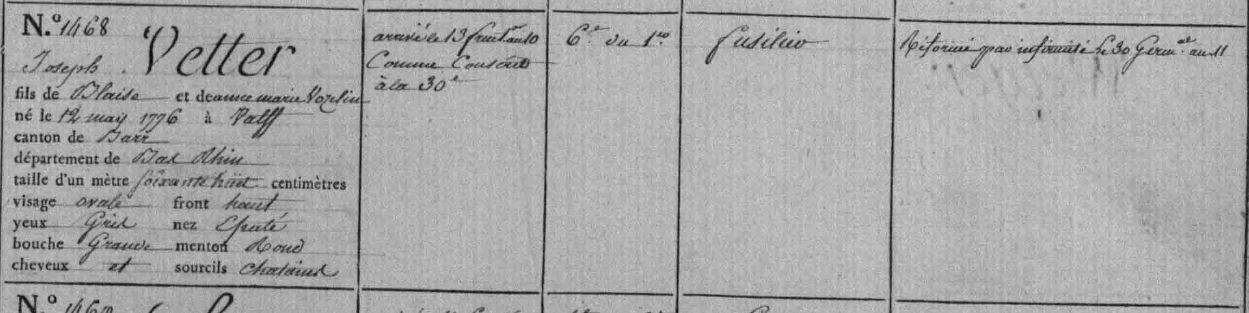 N.º 1468
Joseph Vetter
fils de Blaise et de anne marie Vozelin
né le 12 may 1776 à Valff
canton de Barr
département de Bas Rhin
taille d'un mètre soixante huit centimètres
visage ovale front haut
yeux Gris nez Epaté
bouche Grande menton Rond
cheveux et sourcils chatains
arrivé le 13 fruct. an 10
Comme Conscrit
à la 30e
6e du 1er
fusilier
Réformé par infirmité le 30 Germ.al an 11
N.º 1469